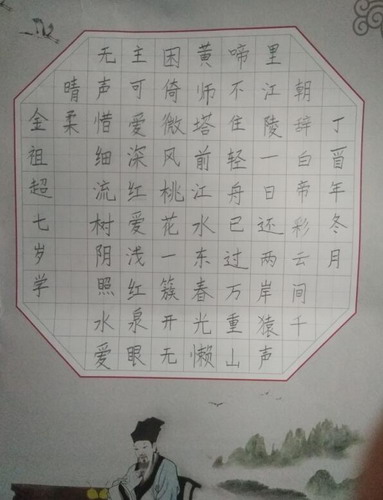 丁酉年冬月
朝辞白帝彩云间千
里江陵一日还两岸猿声
啼不住轻舟已过万重山
黄师塔前江水东春光懒
困倚微风桃花一簇开无
主可爱深红爱浅红泉眼
无声惜细流树阴照水爱
晴柔
金祖超七岁学